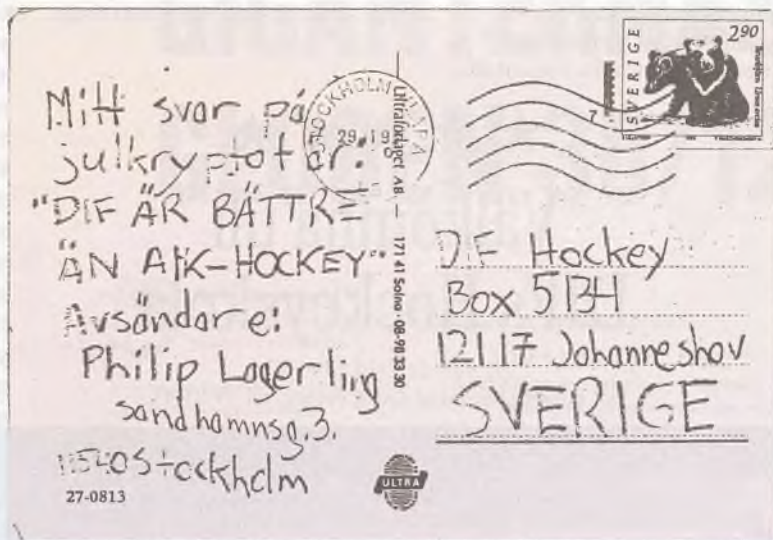 Mitt svar på
julkryptot är:
"DIF ÄR BÄTTRE
ÄN AIK-HOCKEY"
Avsändare:
Philip Lagerling
Sandhamnsg.3.
11540 Stockholm
27-0813
Ultraförlaget AB. — 171 41 Solna · 08-98 33 30
ULTRA
STOCKHOLM KLARA
SVERIGE
2.90
DIF Hockey
Box 5134
12117 Johanneshov
SVERIGE